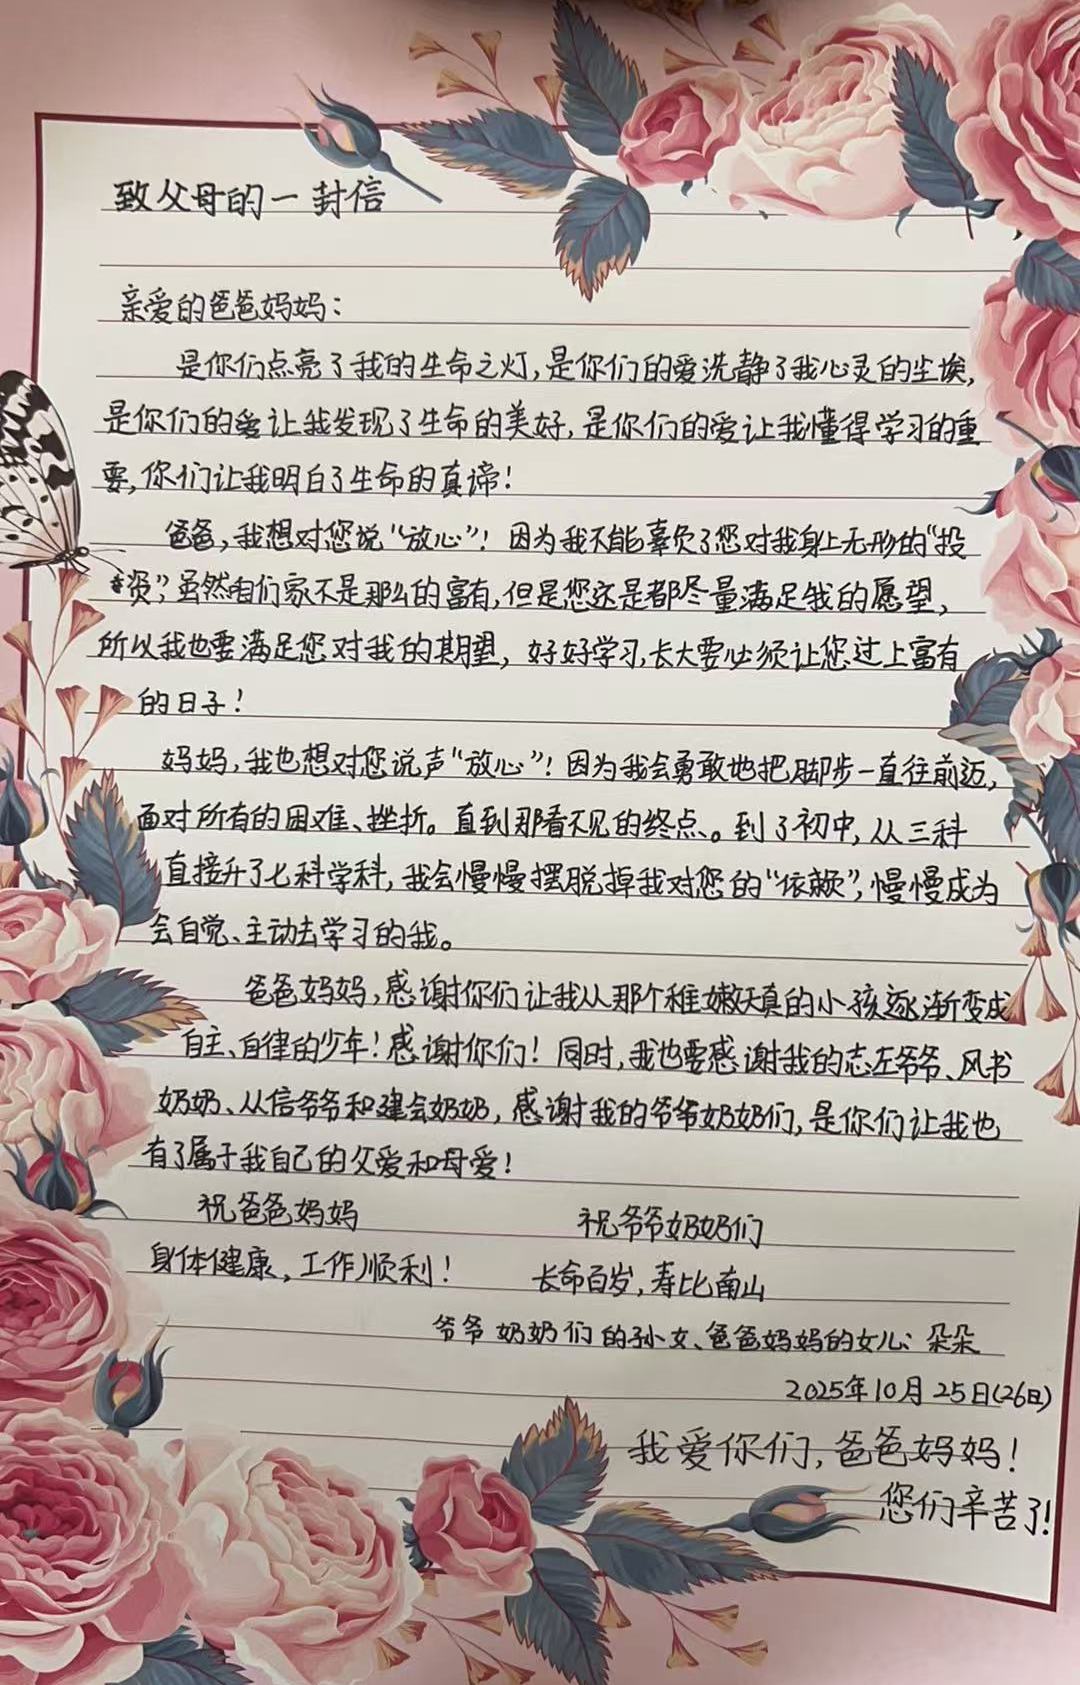 致父母的一封信
亲爱的爸爸妈妈：
是你们点亮了我的生命之灯，是你们的爱洗静了我心灵的尘埃，
是你们的爱让我发现了生命的美好，是你们的爱让我懂得学习的重
要，你们让我明白了生命的真谛！
爸爸，我想对您说“放心”！因为我不能辜负了您对我身上无形的“投
资”，虽然咱们家不是那么的富有，但是您还是都尽量满足我的愿望，
所以我也要满足您对我的期望，好好学习，长大要必须让您过上富有
的日子！
妈妈，我也想对您说声“放心”！因为我会勇敢地把脚步一直往前迈，
面对所有的困难、挫折。直到那看不见的终点。到了初中，从三科
直接升了七科学科，我会慢慢摆脱掉我对您的“依赖”，慢慢成为
会自觉、主动去学习的我。
爸爸妈妈，感谢你们让我从那个稚嫩天真的小孩逐渐变成
自主、自律的少年！感谢你们！同时，我也要感谢我的志左爷爷、风书
奶奶、从信爷爷和建会奶奶，感谢我的爷爷奶奶们，是你们让我也
有了属于我自己的父爱和母爱！
祝爸爸妈妈 祝爷爷奶奶们
身体健康，工作顺利！ 长命百岁，寿比南山
爷爷奶奶们的孙女、爸爸妈妈的女儿：朵朵
2025年10月25日(26日)
我爱你们，爸爸妈妈！
您们辛苦了！